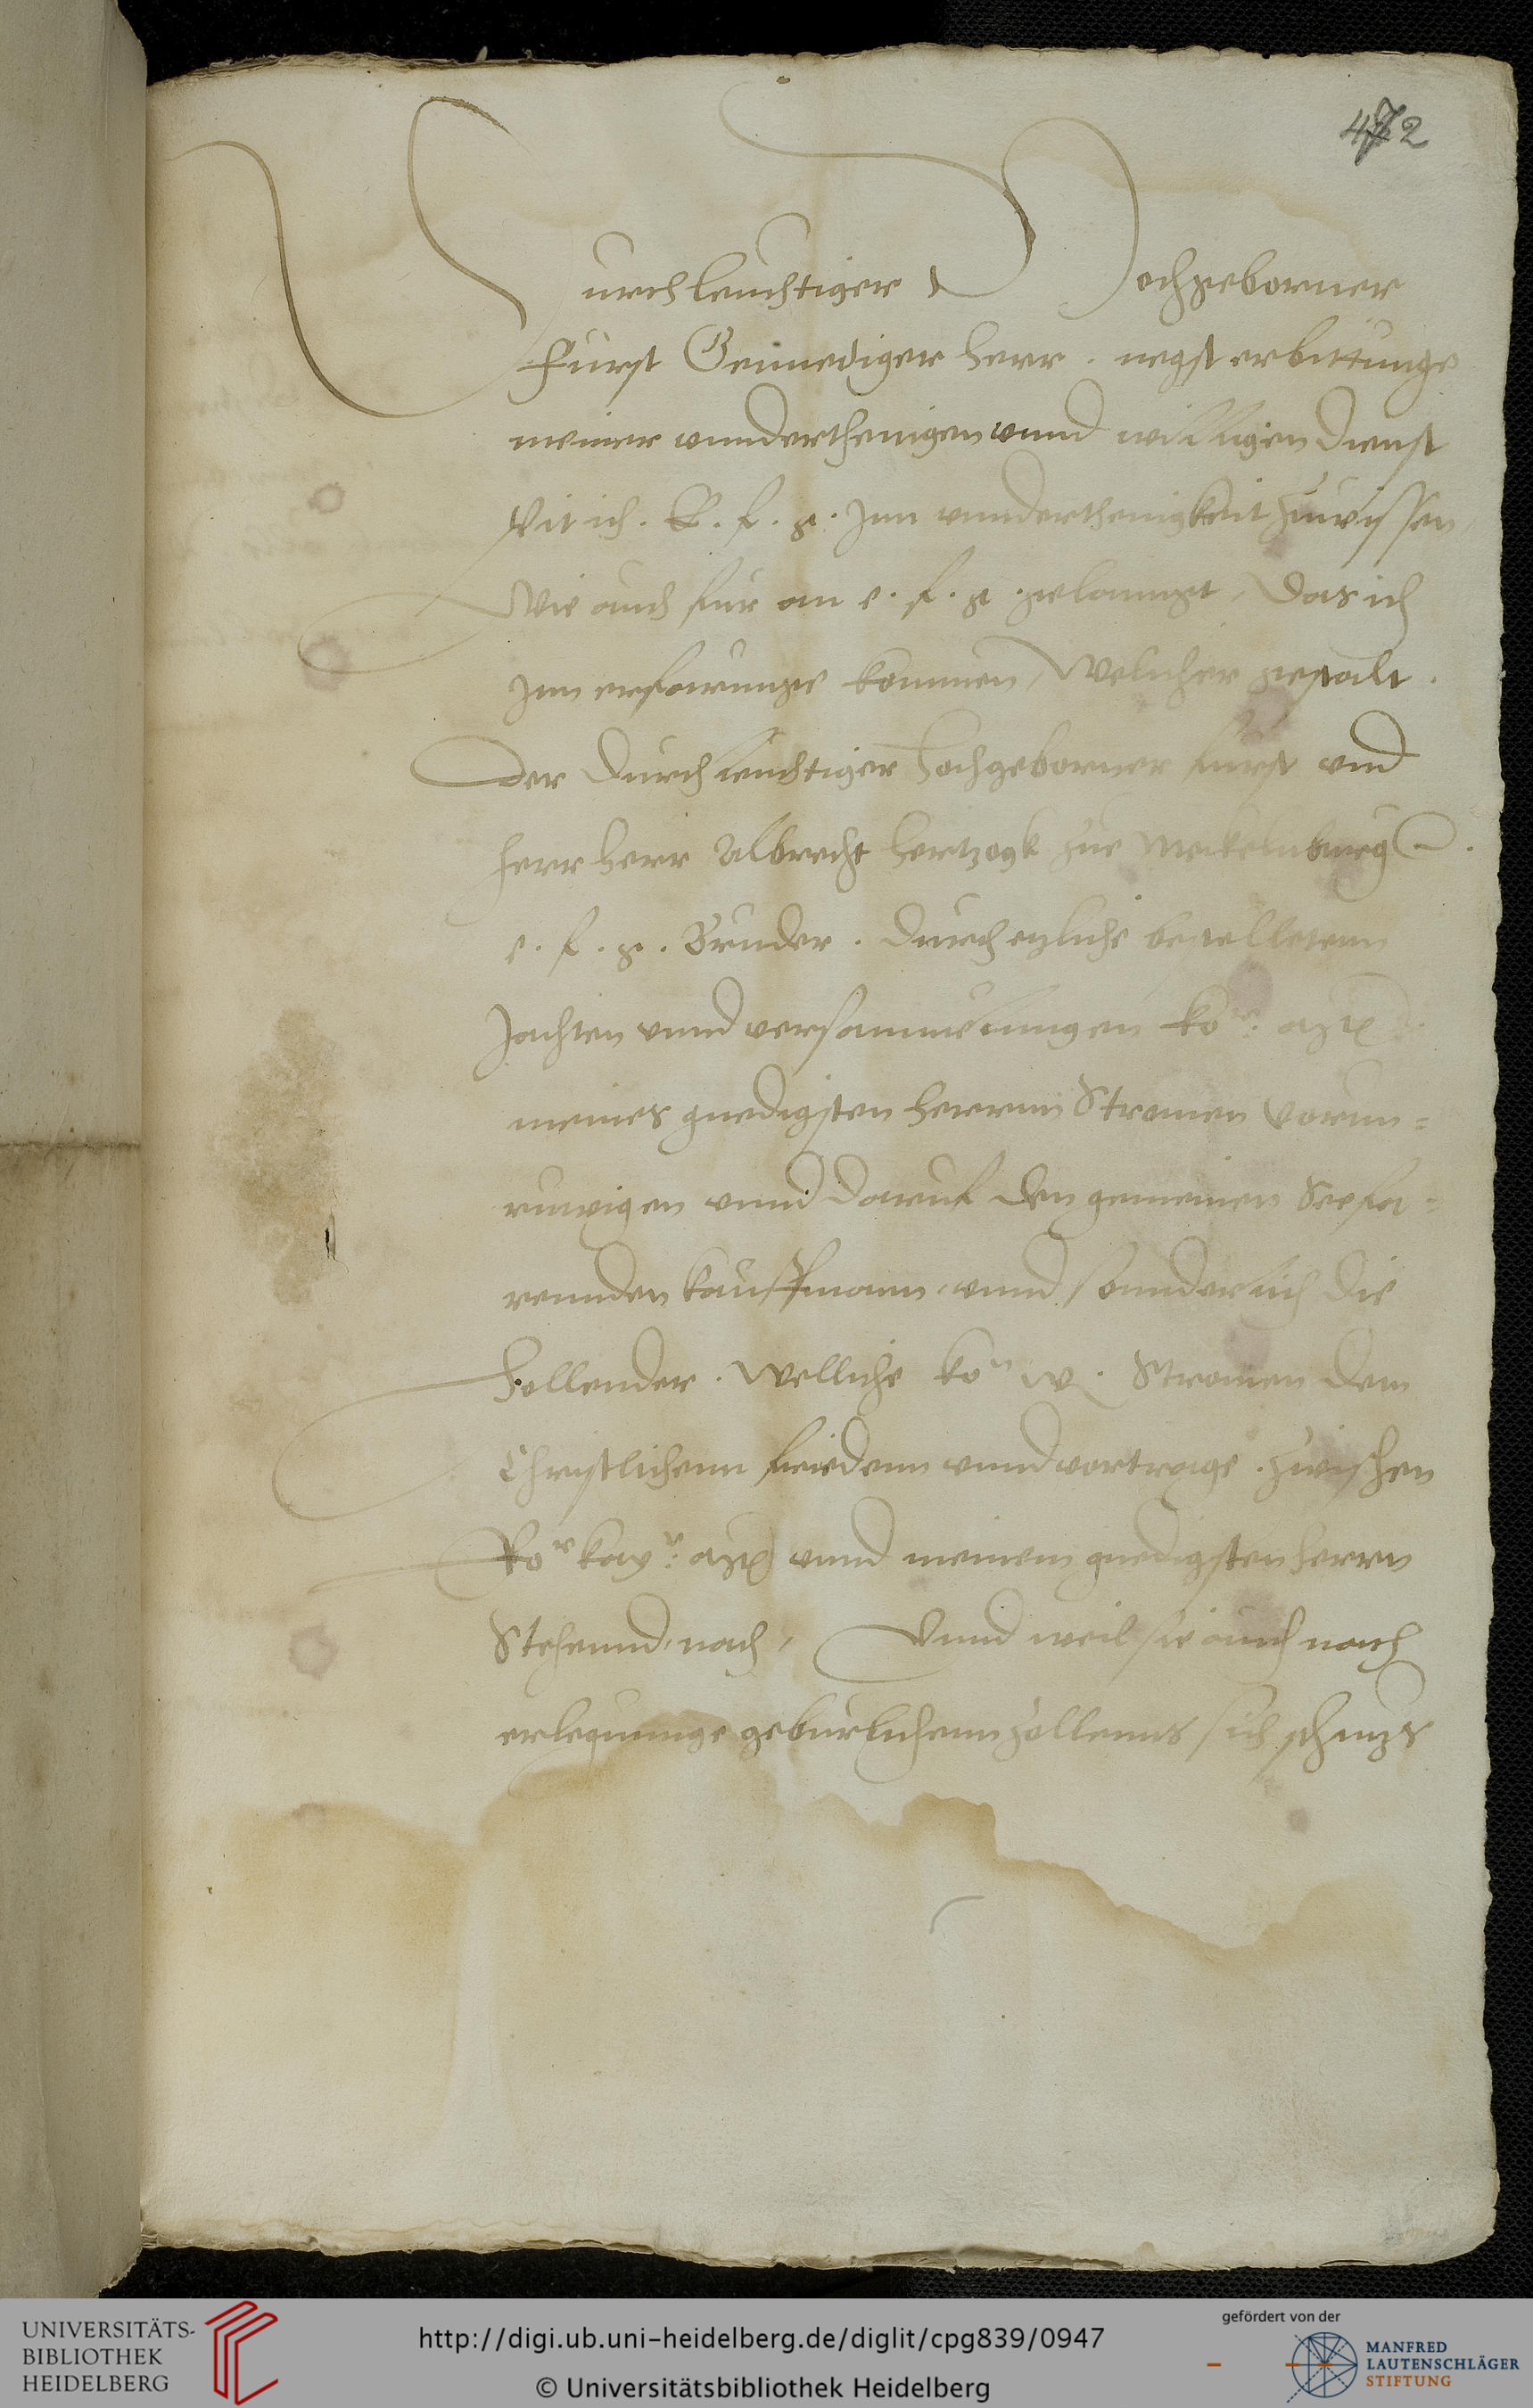 472
Durchleuchtiger Hochgeborner
Furst Gennediger herr . negst erbittunge
meiner vnnderthenigen vnnd willigen dienst
ich . E . f . g . Jnn vnnderthenigkeit zuwissen
Wie auch fur an e . f . g . gelannget, Das ich
Jnn erfarunge kommen, Welicher gestalt .
Der Durchleuchtiger hochgeborner furst vnd
herr herr Albrecht hertzogk zue Meckelnburg
e . f . g . Bruder . durch etzliche bestelletenn
Jachten vnnd versammelungen ko
meines gnedigsten herrnn Stromen vorun=
ruwigen vnnd daruf den gemeinen Seefa=
rennden kauffmann, vnnd sonnderlich die
hollender . Welliche kon . Stromen dem
Christlichenn friedenn vnnd vortrage . zwischen
Ror kayr: vnnd meinem gnedigsten herrn
Stehennd, nach, Vnnd weil sie auch nach
erlegunnge geburlichenn zollenns sich
UNIVERSITÄTS-
BIBLIOTHEK
HEIDELBERG
http://digi.ub.uni-heidelberg.de/diglit/cpg839/0947
© Universitätsbibliothek Heidelberg
gefördert von der
MANFRED
LAUTENSCHLÄGER
STIFTUNG